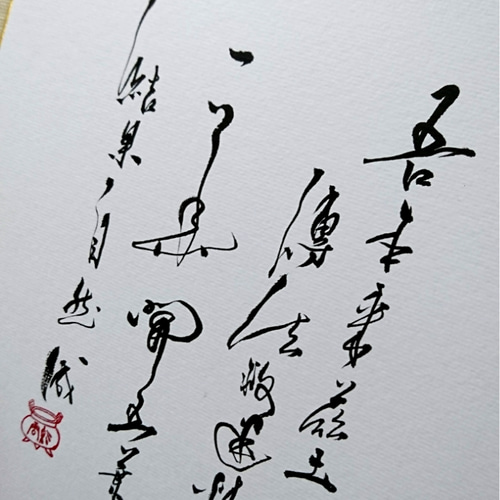 吾本来茲土
傳法救迷
一華開五葉
結果自然成